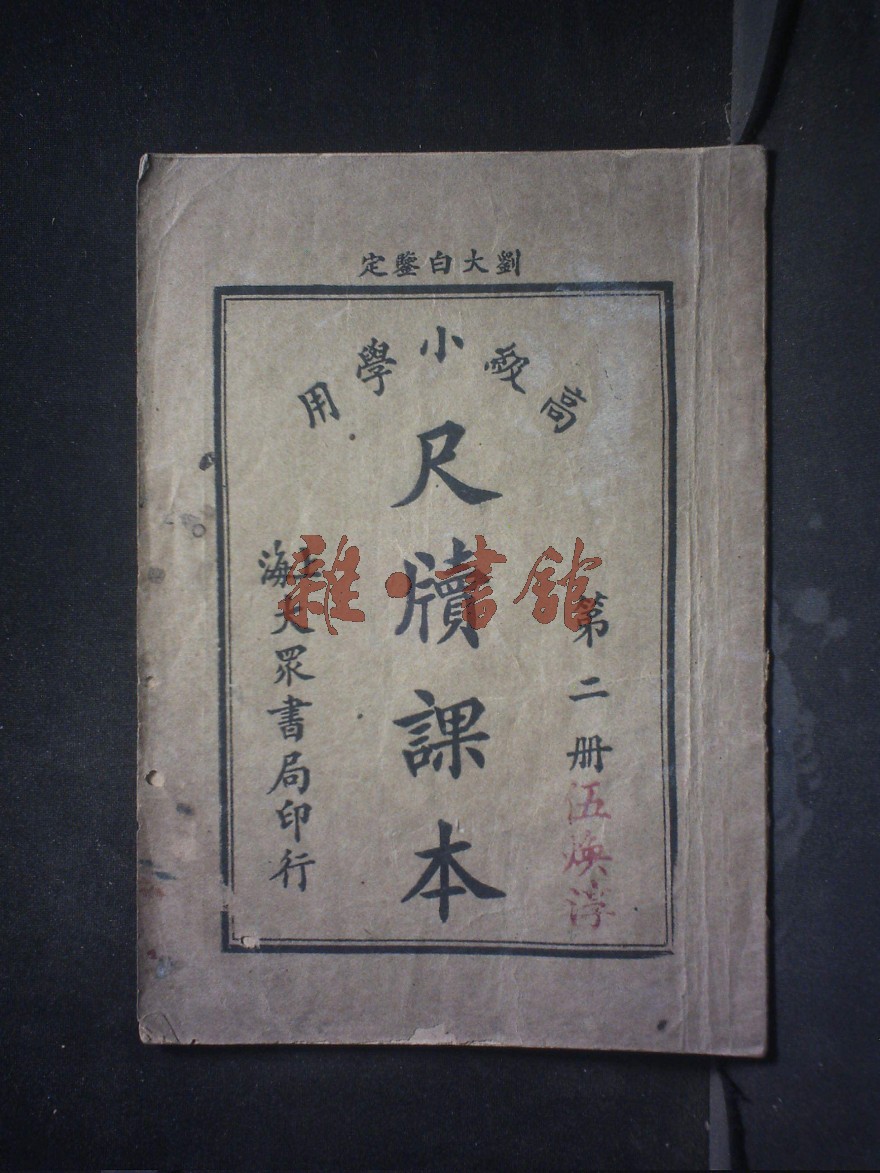 劉大白鑒定
高小學用
尺牘課本
第二册
伍煥
上海大眾書局印行
雜·書館